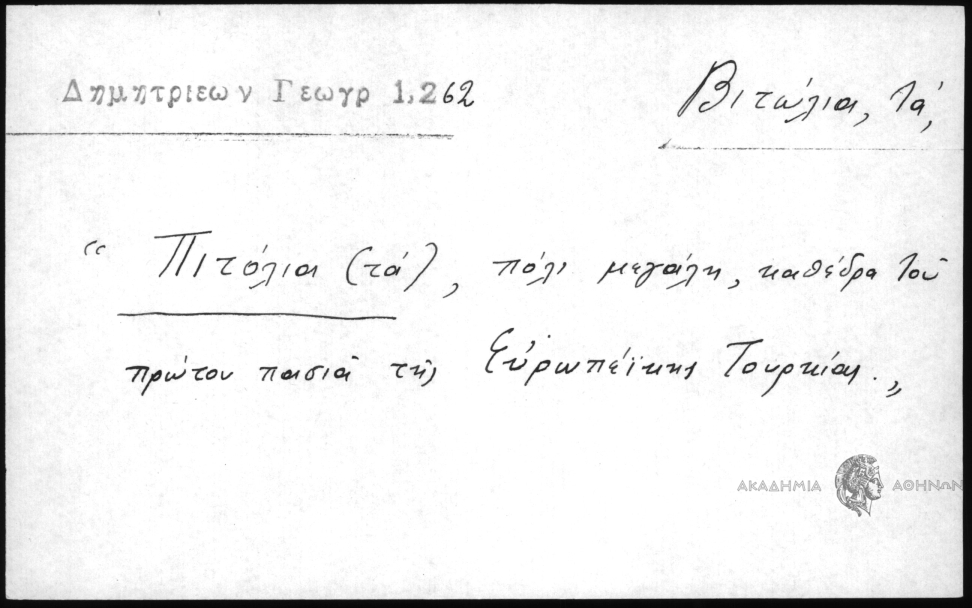 Δημητριεων Γεωγρ 1,262
Βιτώλια, τά,
“ Πιτόλια (τά), πόλι μεγάλη, καθέδρα τοῦ
πρώτου πασιᾶ τῆς Εὐρωπέϊκης Τουρκίας.„
ΑΚΑΔΗΜΙΑ ΑΘΗΝΩΝ